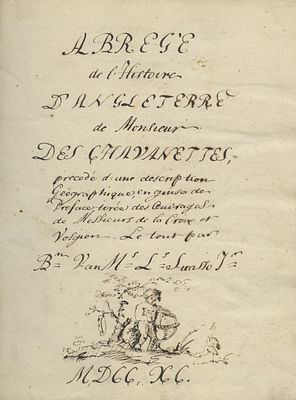 ABREGÉ
de l'Histoire
D'ANGLETERRE
de Monsieur
DES CHAVANETTES,
precedé d'une description
Geographique, en guise de
Preface tirée des Ouvrages
de Messieurs de la Croix et
Vosgien. Le tout par
B:on Van M:s L:s Suasso J:or
MDCC.XC.